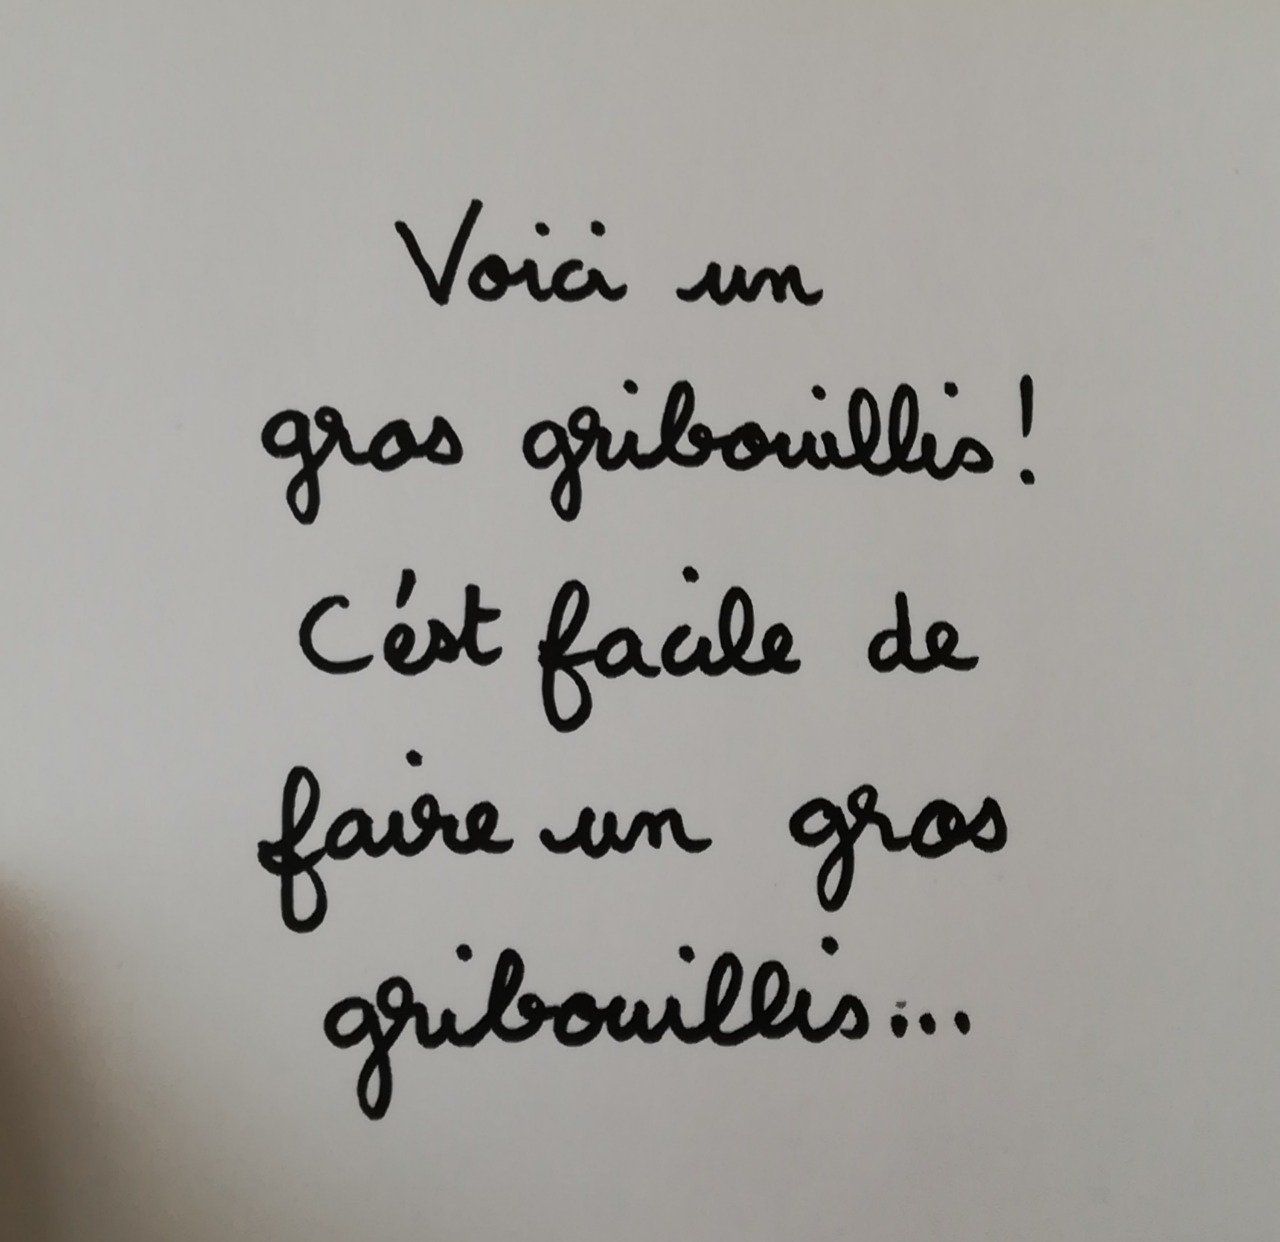 Voici un
gros gribouillis !
C'est facile de
faire un gros
gribouillis...